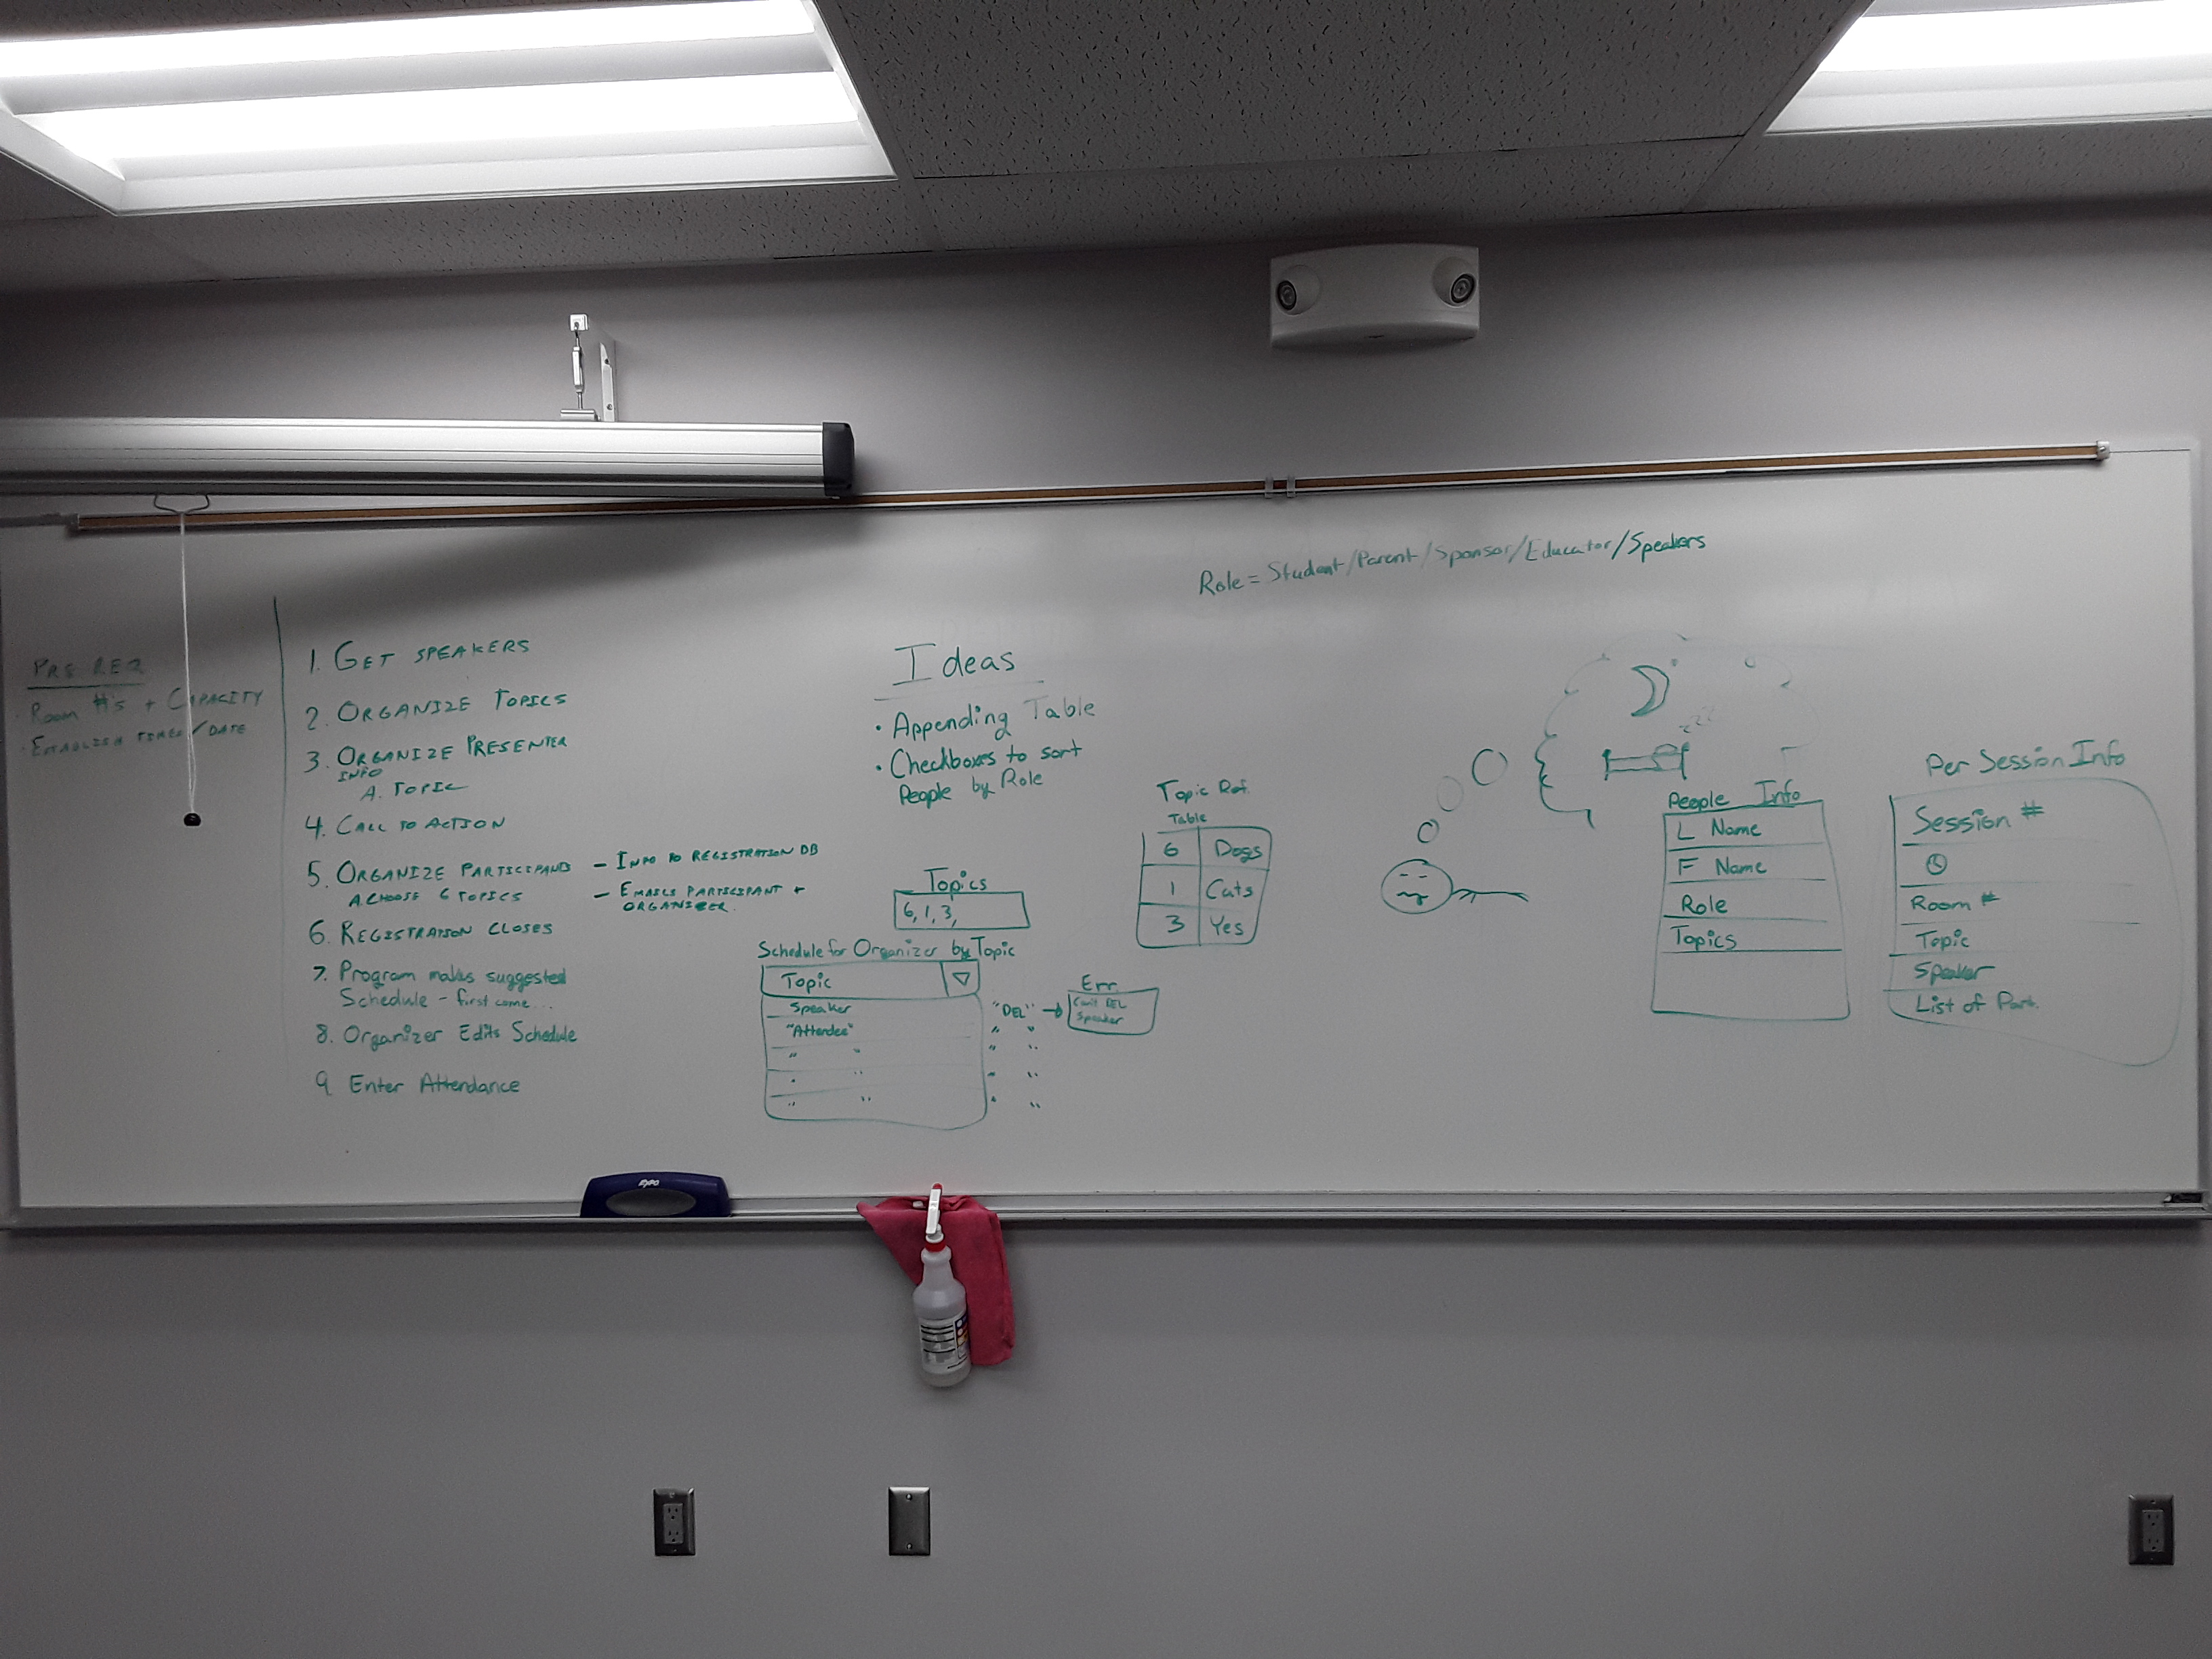 Role = Student/Parent/Sponsor/Educator/Speakers
PRE REQ
· Room #'s + CAPACITY
· ESTABLISH TIMES/DATE
1. GET SPEAKERS
2. ORGANIZE TOPICS
3. ORGANIZE PRESENTER
INFO
A. TOPIC
4. CALL TO ACTION
5. ORGANIZE PARTICIPANTS – INFO TO REGISTRATION DB
A. CHOOSE 6 TOPICS – EMAILS PARTICIPANT +
ORGANIZER.
6. REGISTRATION CLOSES
7. Program makes suggested
Schedule – first come...
8. Organizer Edits Schedule
9 Enter Attendance
Ideas
· Appending Table
· Checkboxes to sort
People by Role
Topics
6, 1, 3,
Topic Ref.
Table
6 Dogs
1 Cats
3 Yes
Schedule for Organizer by Topic
Topic
Speaker
"Attendee"
" "
" "
" "
"DEL" →
" "
" "
" "
" "
Err
Can't DEL
Speaker
zzz
People Info
L Name
F Name
Role
Topics
Per Session Info
Session #
Room #
Topic
Speaker
List of Part.
EXPO